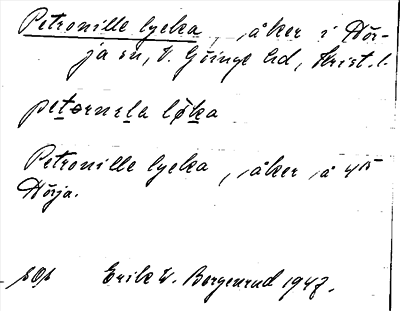 Petronille lycka, åker i Hör-
ja sn, V. Göinge hd, Krist. l.
petornela løka
Petronille lycka, åker å 4 15
Hörja.
sOs Erik W. Bergenrud 1947.